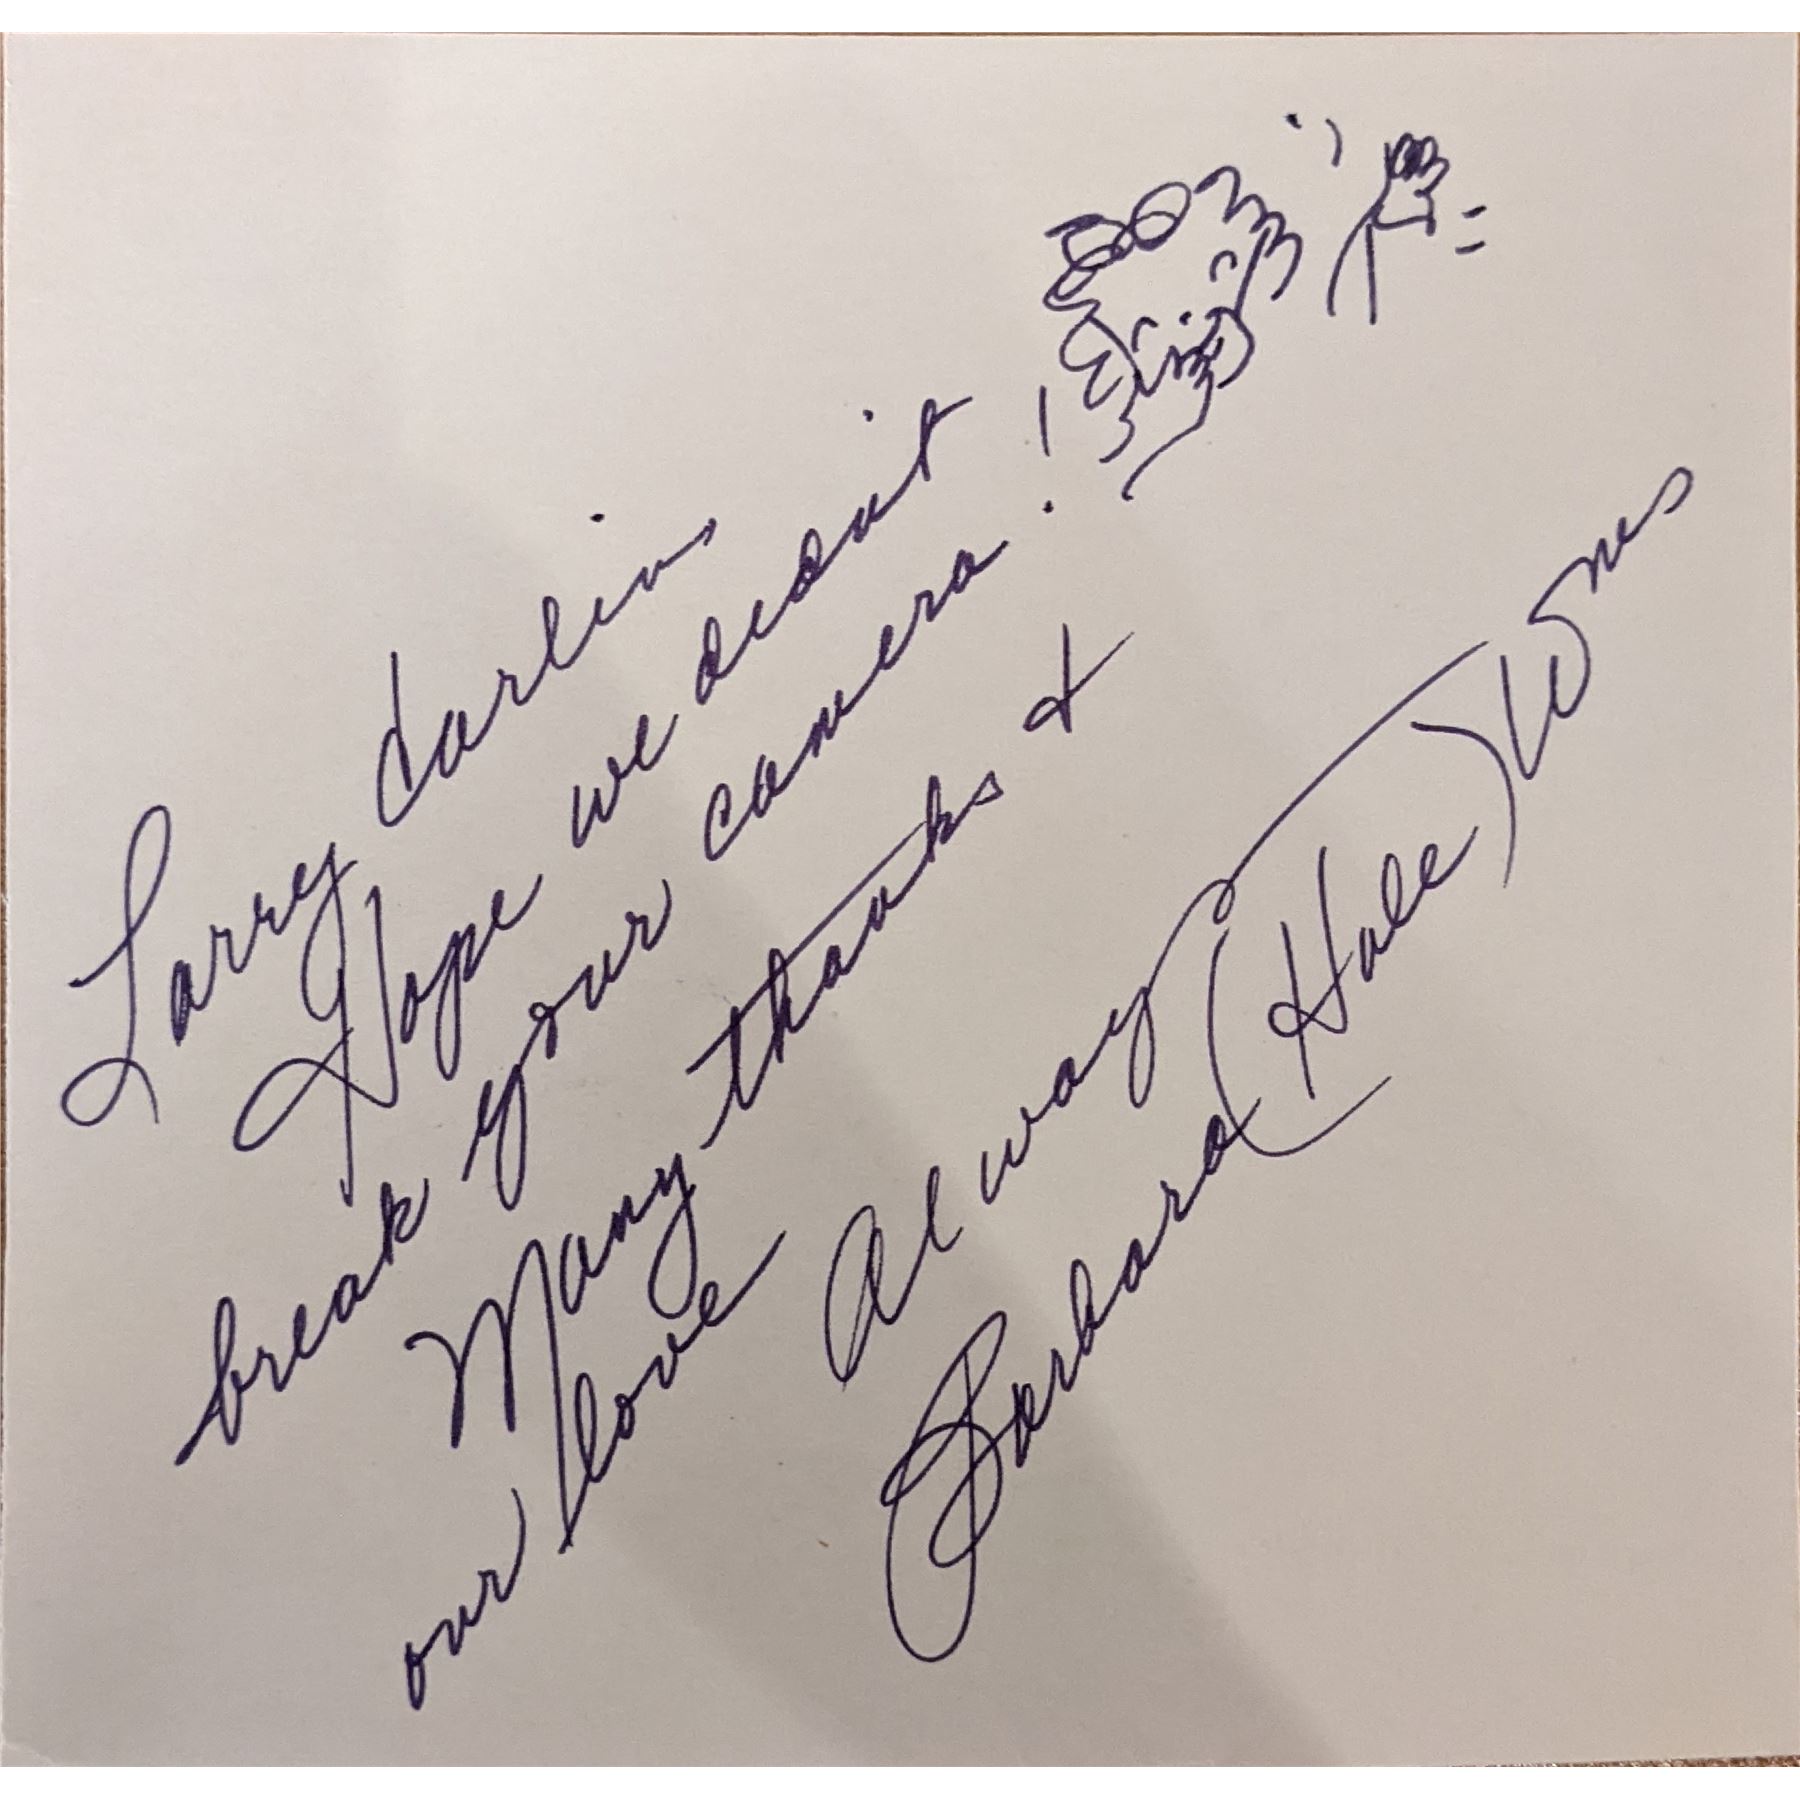 Larry darlin
Hope we didn't
break your camera!
Many thanks &
our love
Always
Barbara (Hale) Wms